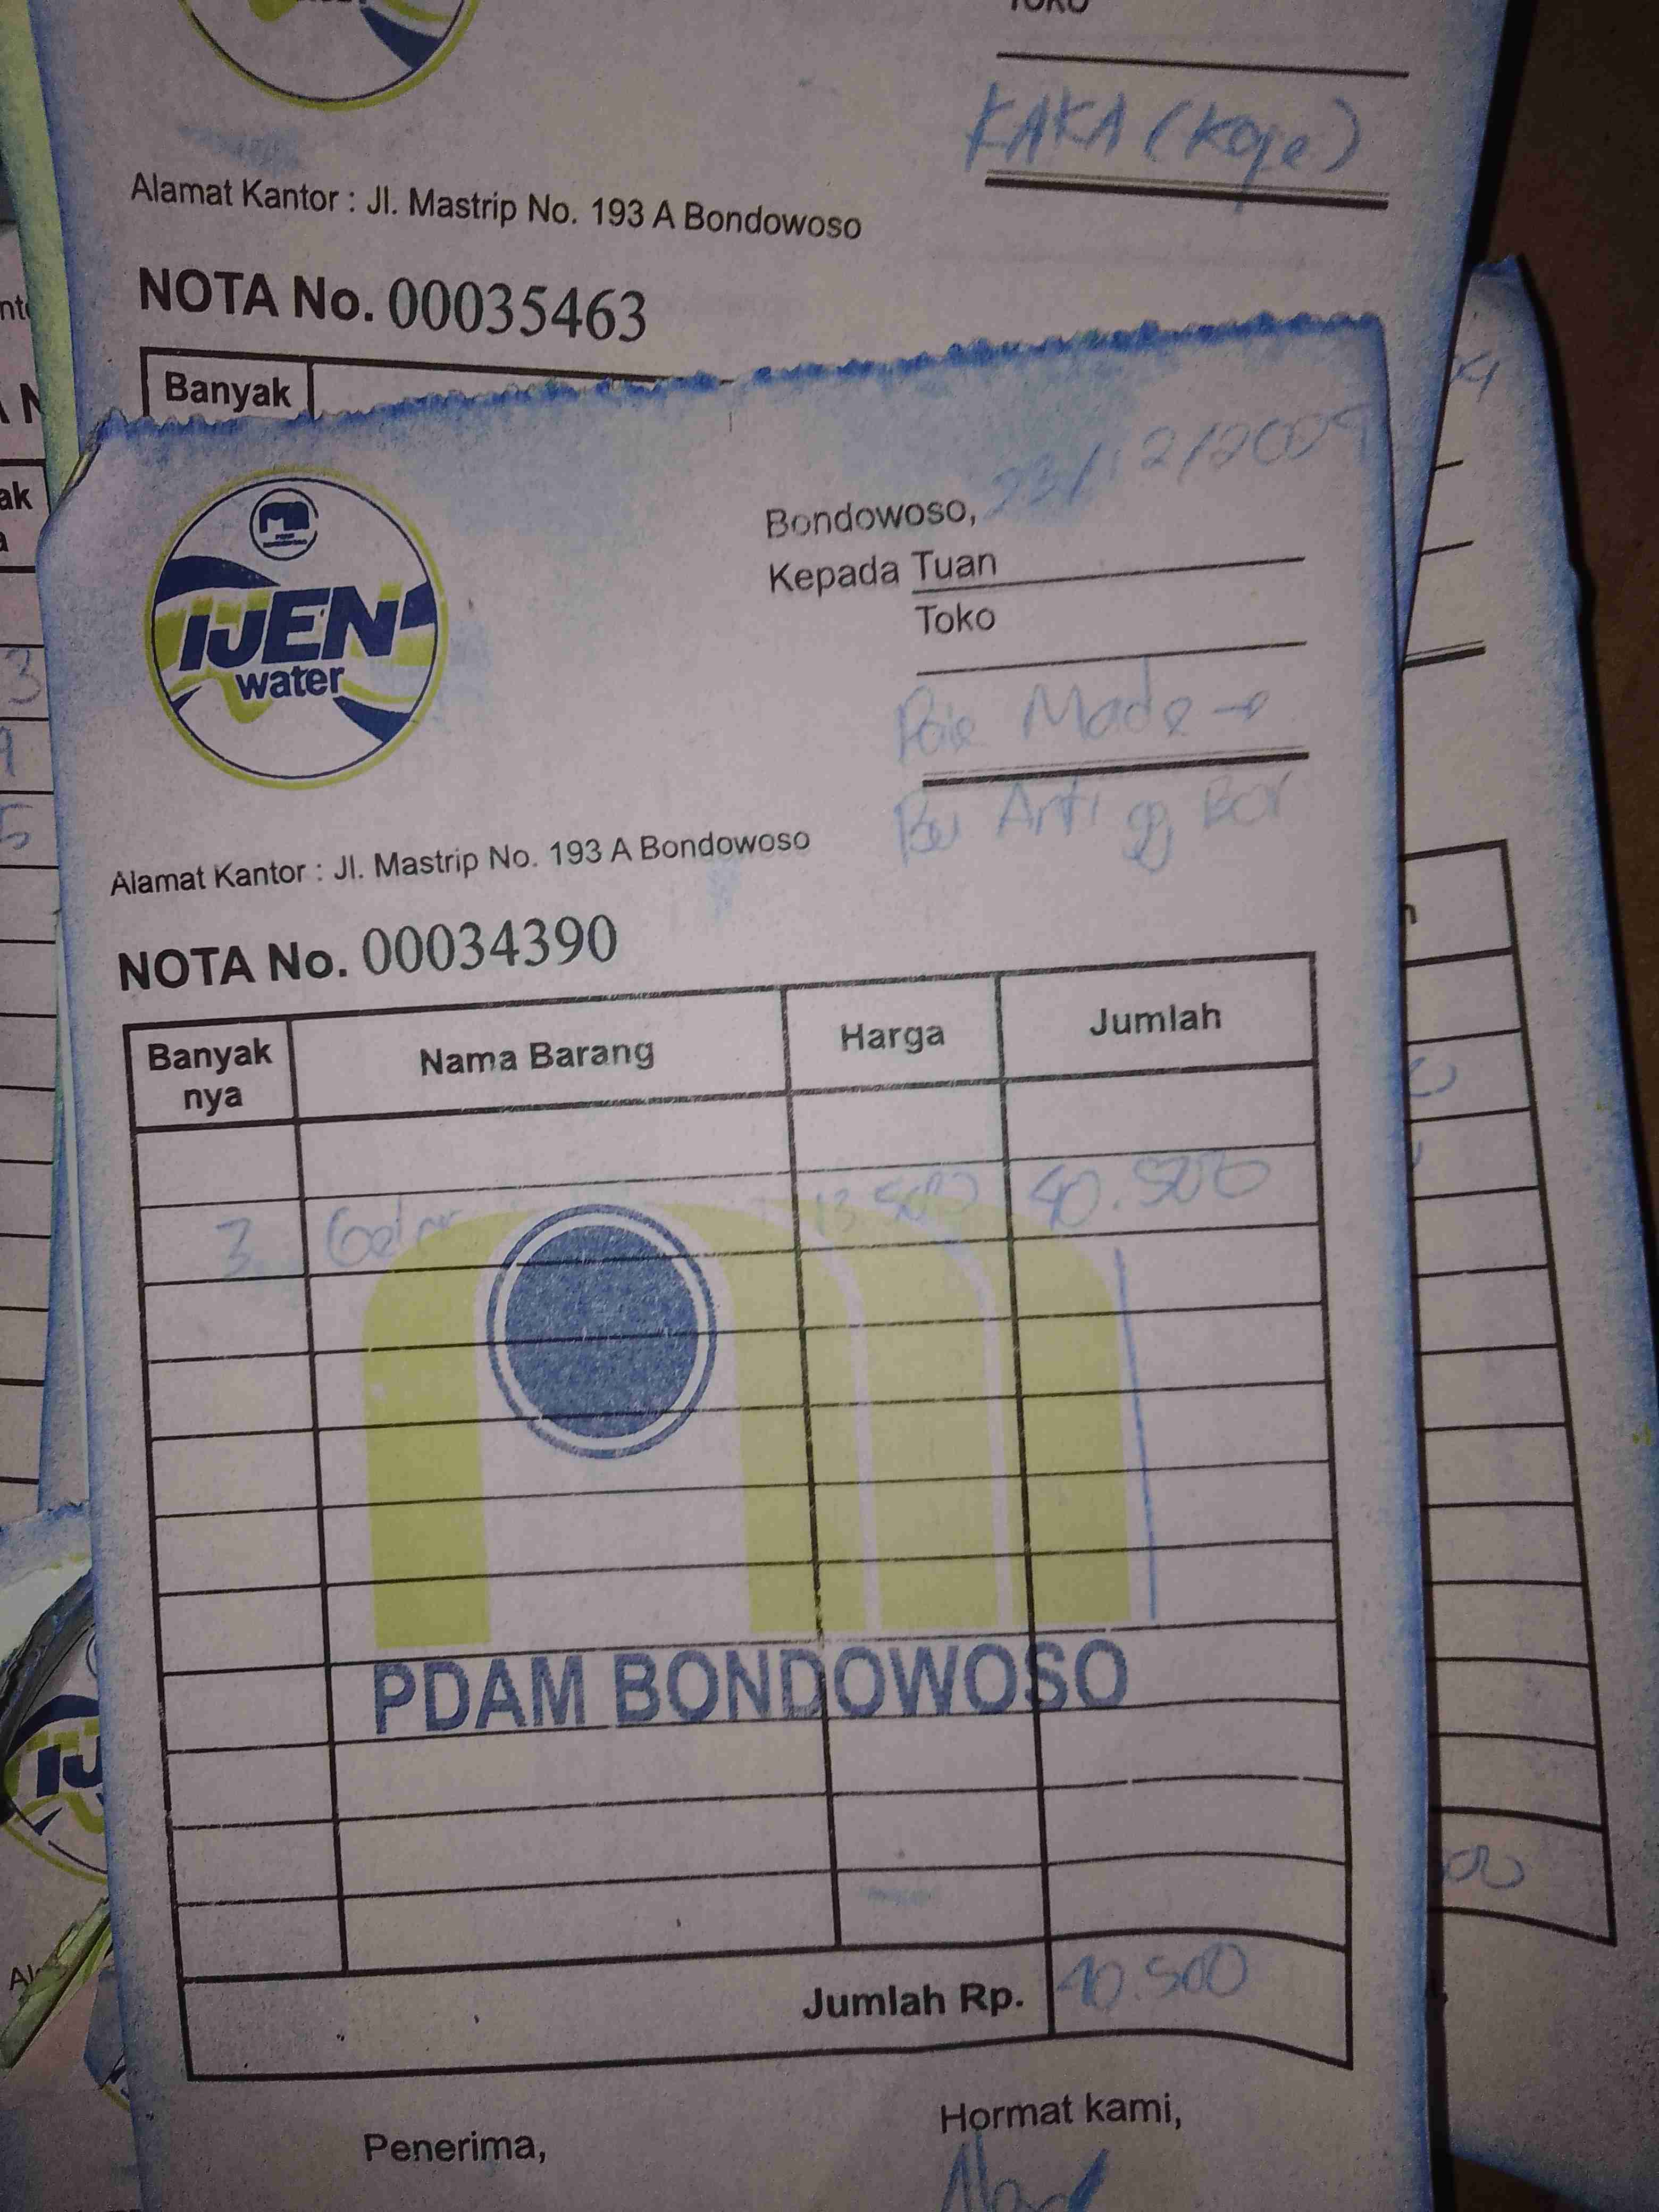 TOKO
KAKA (Koje)
Alamat Kantor : Jl. Mastrip No. 193 A Bondowoso
NOTA No. 00035463
Banyak
IJEN
water
Bondowoso, 23/12/2009
Kepada Tuan
Toko
Made
Bu Arti gg Bor
Alamat Kantor : Jl. Mastrip No. 193 A Bondowoso
NOTA No. 00034390
Banyak nya Nama Barang Harga Jumlah
3 13.500 40.500
PDAM BONDOWOSO
Jumlah Rp. 40.500
Penerima, Hormat kami,